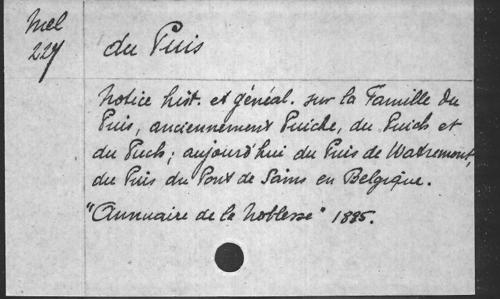 Mel
227
du Puis
Notice hist. et généal. sur la Famille du
Puis, anciennement Puiche, du Puich et
du Puch; aujourd'hui du Puis de Watremont,
du Puis du Pont de Sains en Belgique.
"Annuaire de la Noblesse" 1885.